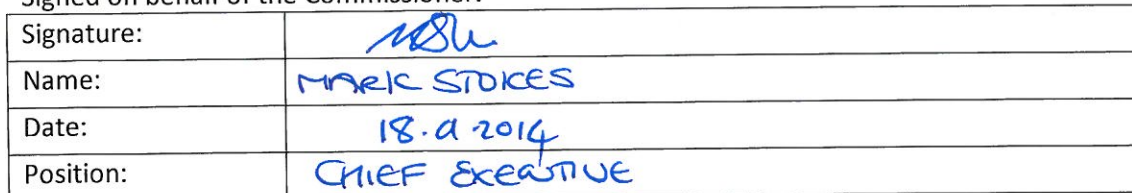 Signed on behalf of the Commissioner:
Signature:
Name: MARK STOKES
Date: 18.9.2014
Position: CHIEF EXECUTIVE